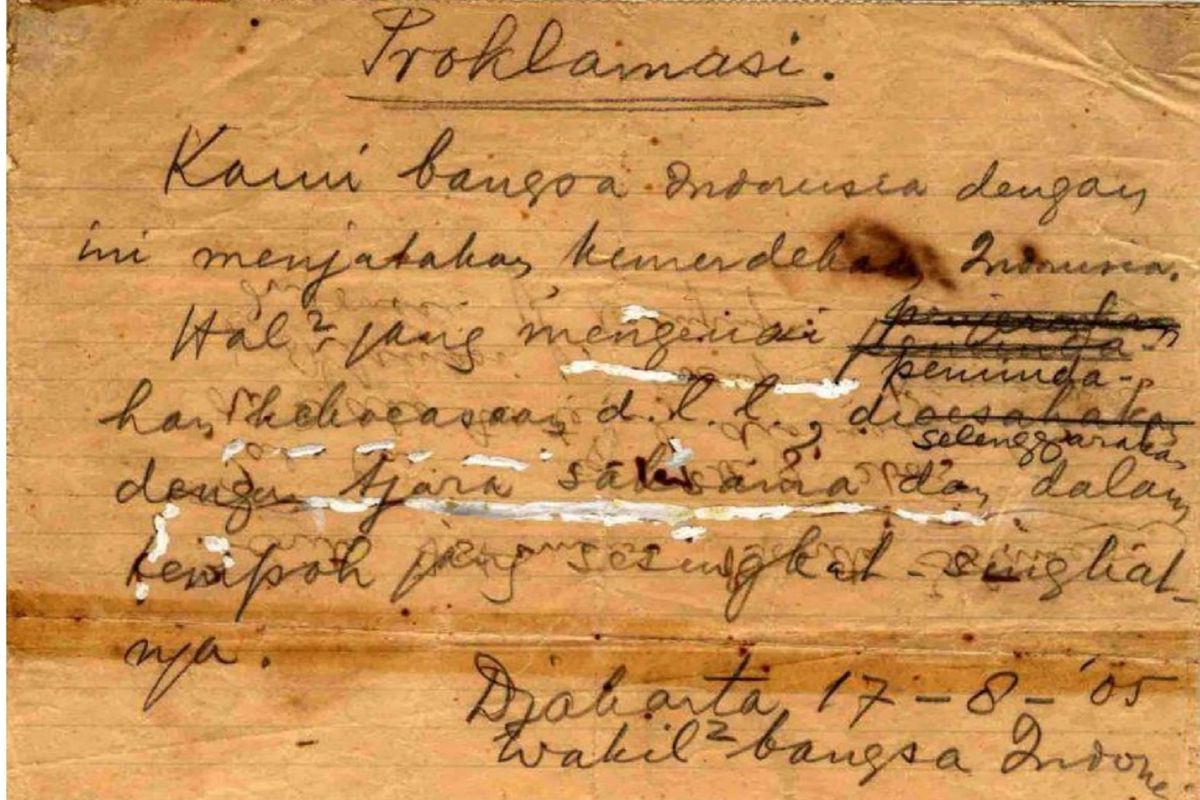 Proklamasi.
Kami bangsa Indonesia dengan
ini menjatakan kemerdekaan Indonesia.
penjerahan
Hal² jang mengenai peminda-
peminda-
han kekoeasaan, d.l.l., dioesahakan
selenggarakan
dengan tjara saksama dan dalam
tempoh jang sesingkat-singkat-
nja.
Djakarta 17-8-'05
Wakil² bangsa Indone